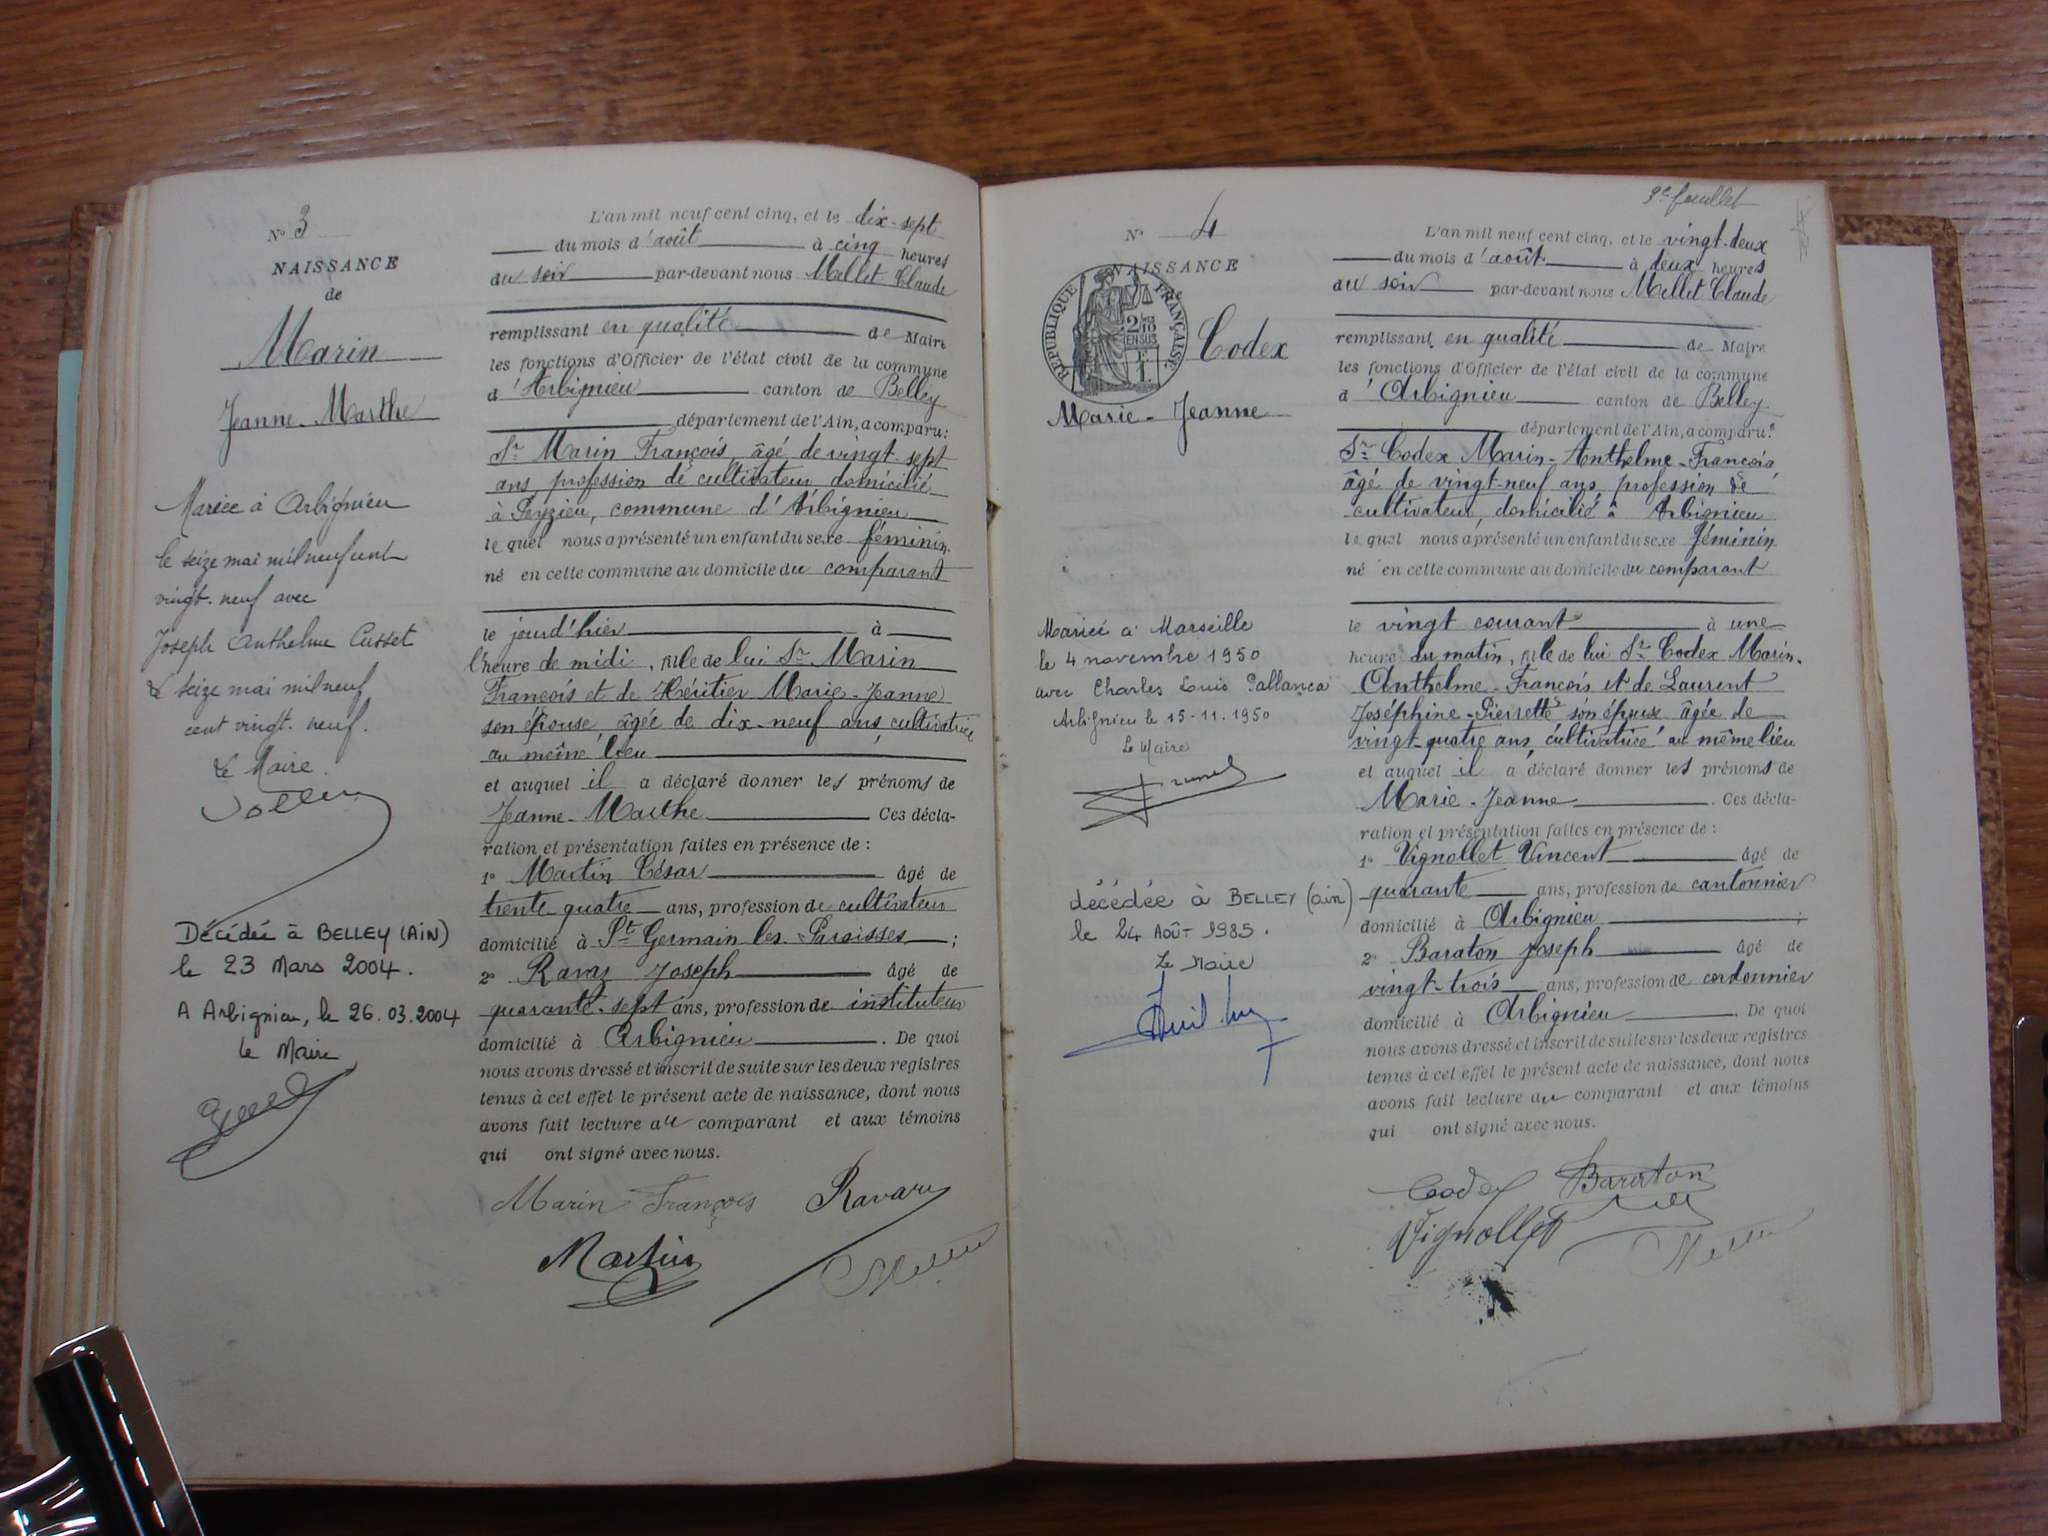 N° 3
NAISSANCE
de
Marin
Jeanne-Marthe
Mariée à Arbignieu
le seize mai mil neuf cent
vingt-neuf avec
Joseph Anthelme Cusset
Le seize mai mil neuf
cent vingt-neuf.
Le Maire.
Décédée à BELLEY (AiN)
le 23 Mars 2004.
A Arbignieu, le 26.03.2004
le Maire
L'an mil neuf cent cinq, et le dix-sept
du mois d'août à cinq heures
du soir par-devant nous Mellet Claude
remplissant en qualité de Maire
les fonctions d'Officier de l'état civil de la commune
d'Arbignieu canton de Belley
département de l'Ain, a comparu:
Sr Marin François, âgé de vingt-sept
ans, profession de cultivateur, domicilié
à Peyzieu, commune d'Arbignieu
lequel nous a présenté un enfant du sexe féminin
né en cette commune au domicile du comparant
le jourd'hier à
l'heure de midi, fille de lui Sr Marin
François et de Héritier Marie-Jeanne
son épouse, âgée de dix-neuf ans, cultivatrice
au même lieu
et auquel il a déclaré donner les prénoms de
Jeanne-Marthe Ces décla-
ration et présentation faites en présence de :
1° Martin César âgé de
trente-quatre ans, profession de cultivateur
domicilié à St Germain les Paroisses ;
2° Ravaz Joseph âgé de
quarante-sept ans, profession de instituteur
domicilié à Arbignieu . De quoi
nous avons dressé et inscrit de suite sur les deux registres
tenus à cet effet le présent acte de naissance, dont nous
avons fait lecture au comparant et aux témoins
qui ont signé avec nous.
Marin François
Martin
9e feuillet
N° 4
NAISSANCE
RÉPUBLIQUE FRANÇAISE
Codex
Marie-Jeanne
Mariée à Marseille
le 4 novembre 1950
avec Charles Louis Pallanca
Arbignieu le 15-11.1950
Le Maire
décédée à BELLEY (ain)
le 24 AOÛT 1985.
Le Maire
L'an mil neuf cent cinq, et le vingt-deux
du mois d'août à deux heures
du soir par-devant nous Mellet Claude
remplissant en qualité de Maire
les fonctions d'Officier de l'état civil de la commune
d'Arbignieu canton de Belley
département de l'Ain, a comparu:
Sr Codex Marin-Anthelme-François
âgé de vingt-neuf ans, profession de
cultivateur, domicilié à Arbignieu
lequel nous a présenté un enfant du sexe féminin
né en cette commune au domicile du comparant
le vingt courant à une
heure du matin, fille de lui Sr Codex Marin-
Anthelme-François et de Laurent
Joséphine-Pierrette son épouse âgée de
vingt-quatre ans, cultivatrice au même lieu
et auquel il a déclaré donner les prénoms de
Marie-Jeanne . Ces décla-
ration et présentation faites en présence de :
1° Vignollet Vincent âgé de
quarante ans, profession de cantonnier
domicilié à Arbignieu ;
2° Baraton Joseph âgé de
vingt-trois ans, profession de cordonnier
domicilié à Arbignieu . De quoi
nous avons dressé et inscrit de suite sur les deux registres
tenus à cet effet le présent acte de naissance, dont nous
avons fait lecture au comparant et aux témoins
qui ont signé avec nous.
Codex Baraton
Vignollet